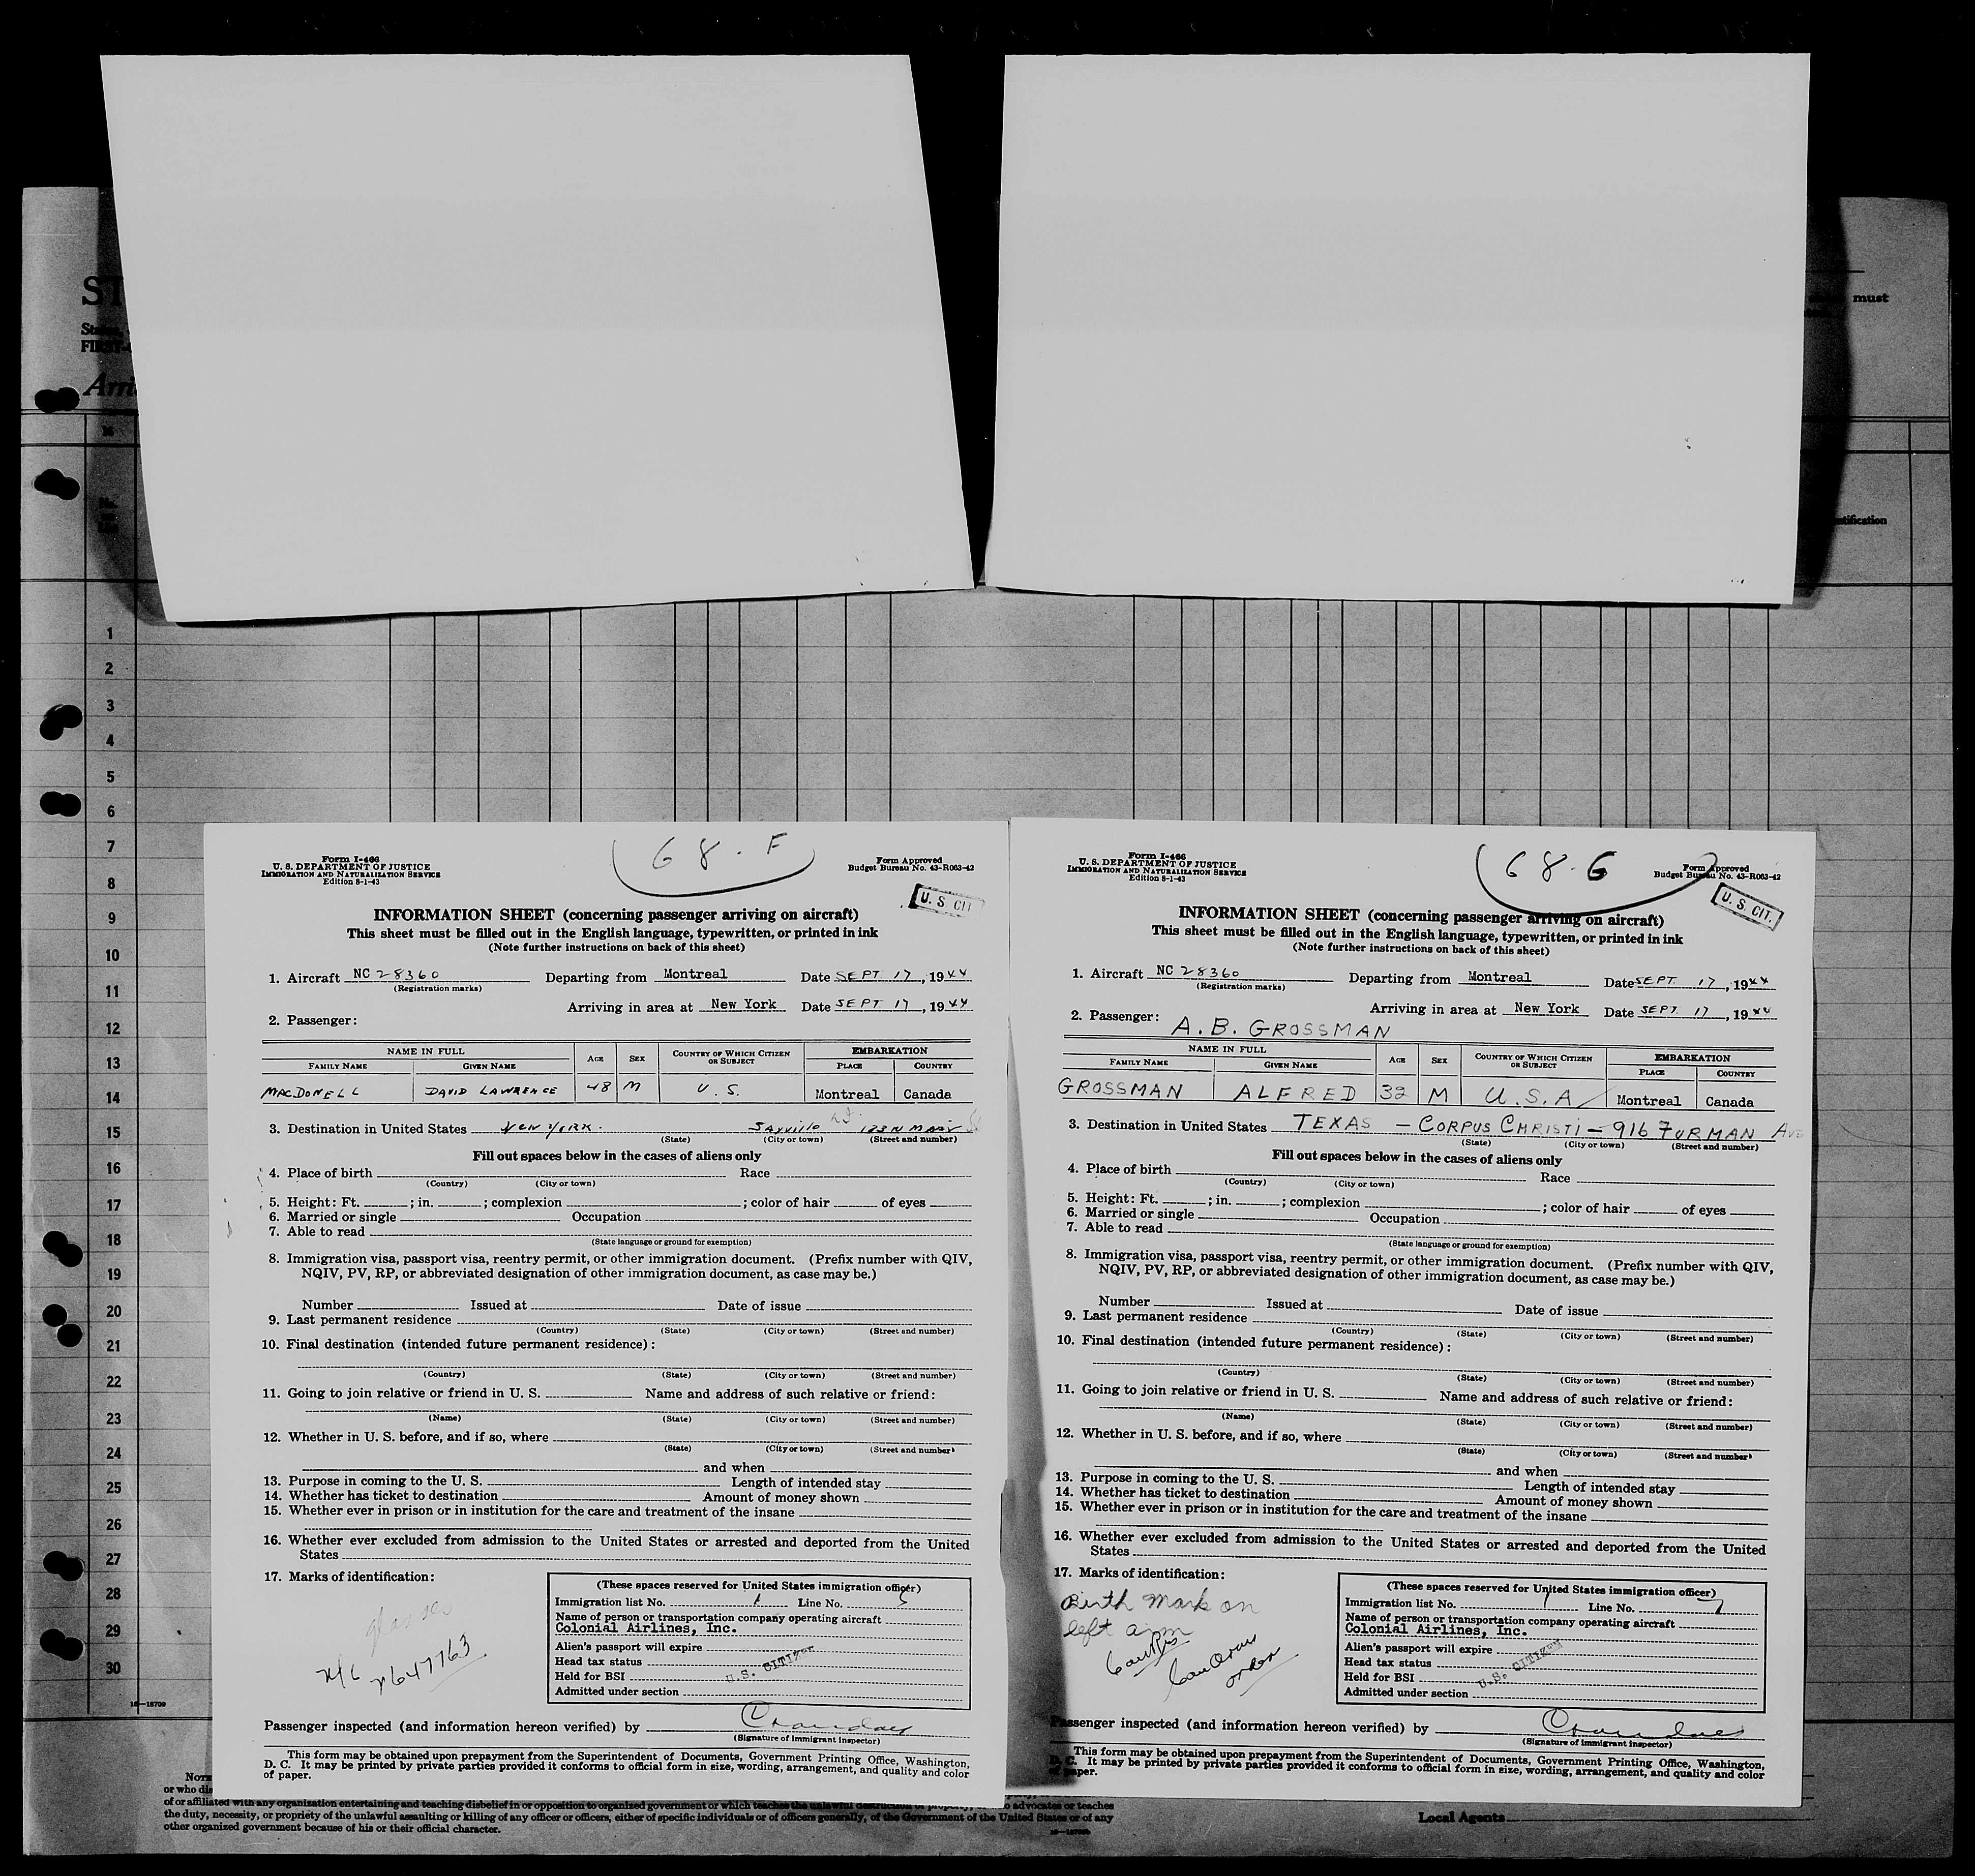 ST
FIRST-
Arri
must
ntification
1
2
3
4
5
6
7
8
9
10
11
12
13
14
15
16
17
18
19
20
21
22
23
24
25
26
27
28
29
30
16—18709
68.F
Form I-466
U. S. DEPARTMENT OF JUSTICE
IMMIGRATION AND NATURALIZATION SERVICE
Edition 8-1-43
Form Approved
Budget Bureau No. 43-R063-42
U. S. CIT
INFORMATION SHEET (concerning passenger arriving on aircraft)
This sheet must be filled out in the English language, typewritten, or printed in ink
(Note further instructions on back of this sheet)
1. Aircraft NC 28360 Departing from Montreal Date SEPT 17, 1944
(Registration marks)
Arriving in area at New York Date SEPT 17, 1944
2. Passenger:
NAME IN FULL AGE SEX COUNTRY OF WHICH CITIZEN OR SUBJECT EMBARKATION
FAMILY NAME GIVEN NAME PLACE COUNTRY
MACDONELL DAVID LAWRENCE 48 M U. S. Montreal Canada
3. Destination in United States NEW YORK. Sayville 133 N MAIN
(State) (City or town) (Street and number)
Fill out spaces below in the cases of aliens only
4. Place of birth Race
(Country) (City or town)
5. Height: Ft. ; in. ; complexion ; color of hair of eyes
6. Married or single Occupation
7. Able to read
(State language or ground for exemption)
8. Immigration visa, passport visa, reentry permit, or other immigration document. (Prefix number with QIV,
NQIV, PV, RP, or abbreviated designation of other immigration document, as case may be.)
Number Issued at Date of issue
9. Last permanent residence
(Country) (State) (City or town) (Street and number)
10. Final destination (intended future permanent residence):
(Country) (State) (City or town) (Street and number)
11. Going to join relative or friend in U. S. Name and address of such relative or friend:
(Name) (State) (City or town) (Street and number)
12. Whether in U. S. before, and if so, where
(State) (City or town) (Street and number)
and when
13. Purpose in coming to the U. S. Length of intended stay
14. Whether has ticket to destination Amount of money shown
15. Whether ever in prison or in institution for the care and treatment of the insane
16. Whether ever excluded from admission to the United States or arrested and deported from the United
States
17. Marks of identification:
glasses
647763
(These spaces reserved for United States immigration officer)
Immigration list No. 1 Line No. 5
Name of person or transportation company operating aircraft
Colonial Airlines, Inc.
Alien's passport will expire
Head tax status
Held for BSI
U.S. CITIZEN
Admitted under section
Passenger inspected (and information hereon verified) by
(Signature of immigrant inspector)
This form may be obtained upon prepayment from the Superintendent of Documents, Government Printing Office, Washington,
D. C. It may be printed by private parties provided it conforms to official form in size, wording, arrangement, and quality and color
of paper.
68.G
Form I-466
U. S. DEPARTMENT OF JUSTICE
IMMIGRATION AND NATURALIZATION SERVICE
Edition 8-1-43
Form Approved
Budget Bureau No. 43-R063-42
U. S. CIT.
INFORMATION SHEET (concerning passenger arriving on aircraft)
This sheet must be filled out in the English language, typewritten, or printed in ink
(Note further instructions on back of this sheet)
1. Aircraft NC 28360 Departing from Montreal Date SEPT 17, 1944
(Registration marks)
Arriving in area at New York Date SEPT 17, 1944
2. Passenger: A. B. GROSSMAN
NAME IN FULL AGE SEX COUNTRY OF WHICH CITIZEN OR SUBJECT EMBARKATION
FAMILY NAME GIVEN NAME PLACE COUNTRY
GROSSMAN ALFRED 32 M U.S.A Montreal Canada
3. Destination in United States TEXAS - CORPUS CHRISTI - 916 FURMAN AVE
(State) (City or town) (Street and number)
Fill out spaces below in the cases of aliens only
4. Place of birth Race
(Country) (City or town)
5. Height: Ft. ; in. ; complexion ; color of hair of eyes
6. Married or single Occupation
7. Able to read
(State language or ground for exemption)
8. Immigration visa, passport visa, reentry permit, or other immigration document. (Prefix number with QIV,
NQIV, PV, RP, or abbreviated designation of other immigration document, as case may be.)
Number Issued at Date of issue
9. Last permanent residence
(Country) (State) (City or town) (Street and number)
10. Final destination (intended future permanent residence):
(Country) (State) (City or town) (Street and number)
11. Going to join relative or friend in U. S. Name and address of such relative or friend:
(Name) (State) (City or town) (Street and number)
12. Whether in U. S. before, and if so, where
(State) (City or town) (Street and number)
and when
13. Purpose in coming to the U. S. Length of intended stay
14. Whether has ticket to destination Amount of money shown
15. Whether ever in prison or in institution for the care and treatment of the insane
16. Whether ever excluded from admission to the United States or arrested and deported from the United
States
17. Marks of identification:
Birth Mark on
left arm
(These spaces reserved for United States immigration officer)
Immigration list No. 1 Line No. 7
Name of person or transportation company operating aircraft
Colonial Airlines, Inc.
Alien's passport will expire
Head tax status
Held for BSI
U.S. CITIZEN
Admitted under section
Passenger inspected (and information hereon verified) by
(Signature of immigrant inspector)
This form may be obtained upon prepayment from the Superintendent of Documents, Government Printing Office, Washington,
D. C. It may be printed by private parties provided it conforms to official form in size, wording, arrangement, and quality and color
of paper.
NOTE
or who dis
of or affiliated with any organization entertaining and teaching disbelief in or opposition to organized government or which teaches the unlawful destruction of property, advocates or teaches
the duty, necessity, or propriety of the unlawful assaulting or killing of any officer or officers, either of specific individuals or of officers generally, of the Government of the United States or of any
other organized government because of his or their official character.
Local Agents